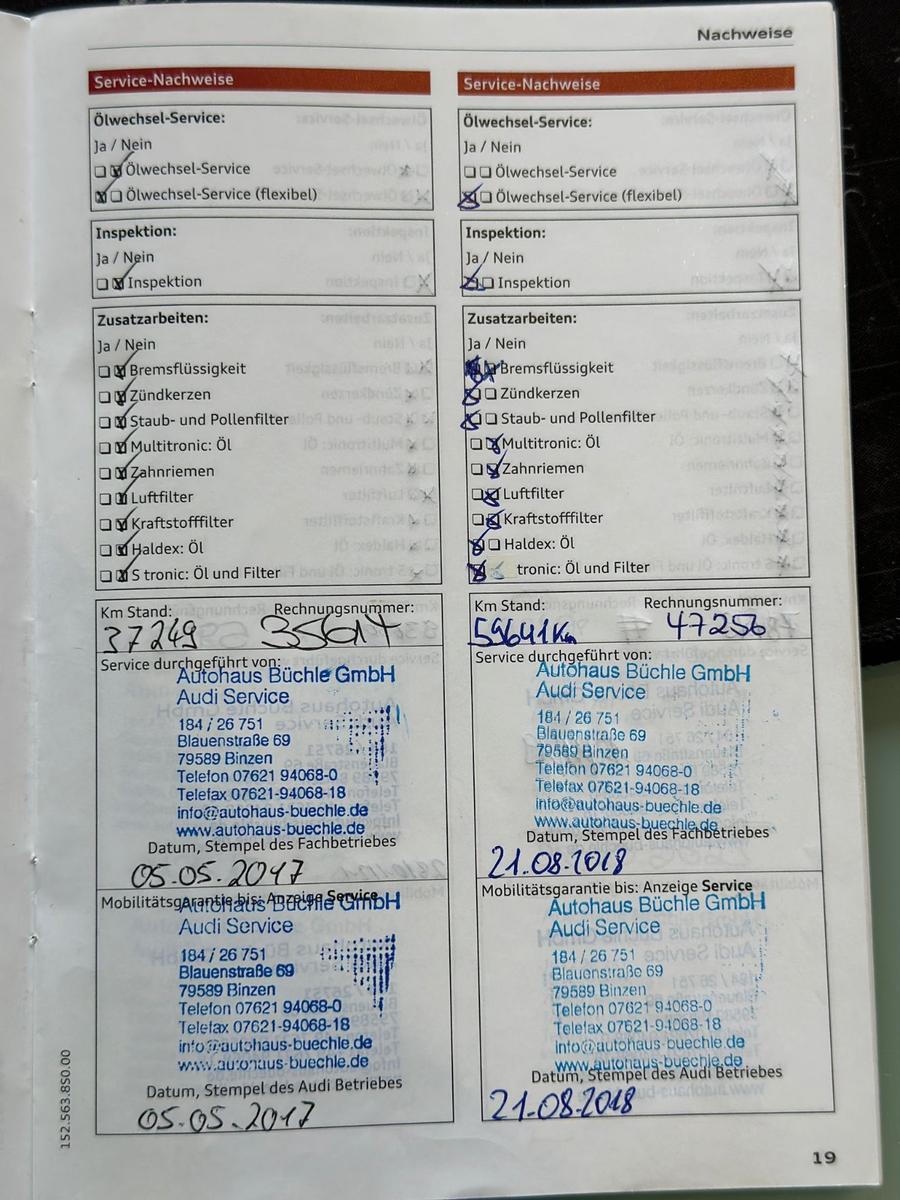 Nachweise
Service-Nachweise
Ölwechsel-Service:
Ja / Nein
Ölwechsel-Service
Ölwechsel-Service (flexibel)
Inspektion:
Ja / Nein
Inspektion
Zusatzarbeiten:
Ja / Nein
Bremsflüssigkeit
Zündkerzen
Staub- und Pollenfilter
Multitronic: Öl
Zahnriemen
Luftfilter
Kraftstofffilter
Haldex: Öl
S tronic: Öl und Filter
Km Stand: Rechnungsnummer:
37249 35614
Service durchgeführt von:
Autohaus Büchle GmbH
Audi Service
184 / 26 751
Blauenstraße 69
79589 Binzen
Telefon 07621 94068-0
Telefax 07621-94068-18
info@autohaus-buechle.de
www.autohaus-buechle.de
Datum, Stempel des Fachbetriebes
05.05.2017
Mobilitätsgarantie bis: Anzeige Service
Autohaus Büchle GmbH
Audi Service
184 / 26 751
Blauenstraße 69
79589 Binzen
Telefon 07621 94068-0
Telefax 07621-94068-18
info@autohaus-buechle.de
www.autohaus-buechle.de
Datum, Stempel des Audi Betriebes
05.05.2017
Service-Nachweise
Ölwechsel-Service:
Ja / Nein
Ölwechsel-Service
Ölwechsel-Service (flexibel)
Inspektion:
Ja / Nein
Inspektion
Zusatzarbeiten:
Ja / Nein
Bremsflüssigkeit
Zündkerzen
Staub- und Pollenfilter
Multitronic: Öl
Zahnriemen
Luftfilter
Kraftstofffilter
Haldex: Öl
tronic: Öl und Filter
Km Stand: Rechnungsnummer:
59641Km 47256
Service durchgeführt von:
Autohaus Büchle GmbH
Audi Service
184 / 26 751
Blauenstraße 69
79589 Binzen
Telefon 07621 94068-0
Telefax 07621-94068-18
info@autohaus-buechle.de
www.autohaus-buechle.de
Datum, Stempel des Fachbetriebes
21.08.2018
Mobilitätsgarantie bis: Anzeige Service
Autohaus Büchle GmbH
Audi Service
184 / 26 751
Blauenstraße 69
79589 Binzen
Telefon 07621 94068-0
Telefax 07621-94068-18
info@autohaus-buechle.de
www.autohaus-buechle.de
Datum, Stempel des Audi Betriebes
21.08.2018
152.563.8S0.00
19